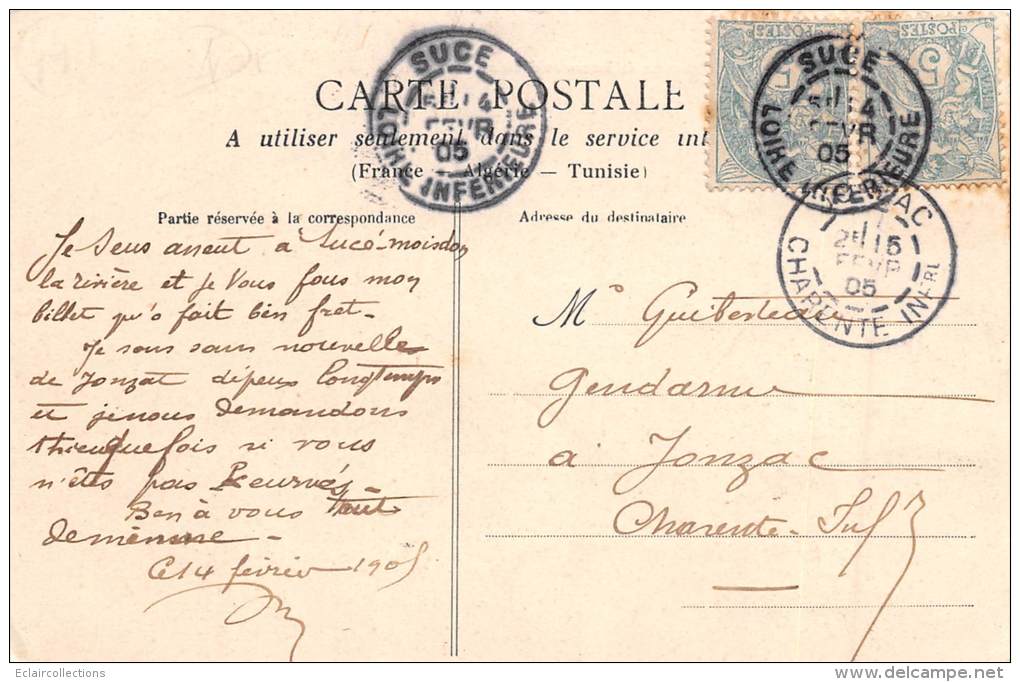 SUCE
5E /4
FEVR
05
LOIRE INFERIEURE
POSTES
5
POSTES
5
SUCE
5E /4
FEVR
05
LOIRE INFERIEURE
CARTE POSTALE
A utiliser seulement dans le service int
(France — Algérie — Tunisie)
JONZAC
2E /15
FEVR
05
CHARENTE INFRE
Partie réservée à la correspondance
Adresse du destinataire
Je Sens arrent a Sucé-moisdon
la rivière et je Vous fous mon
billet qu'o fait bén fret-
Je sons sans nouvelles
de Jonzat dépeus longtemps
et je nous demandons
queuquefois si vous
n'êtes pas
Ben à vous tout
de même -
Ce 14 février 1905
M Guiberteau
Gendarme
à Jonzac
Charente-Infre
Eclaircollections
www.delcampe.net